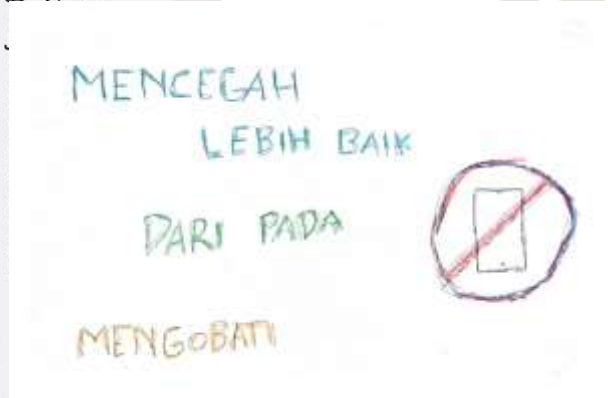 MENCEGAH
LEBIH BAIK
DARI PADA
MENGOBATI